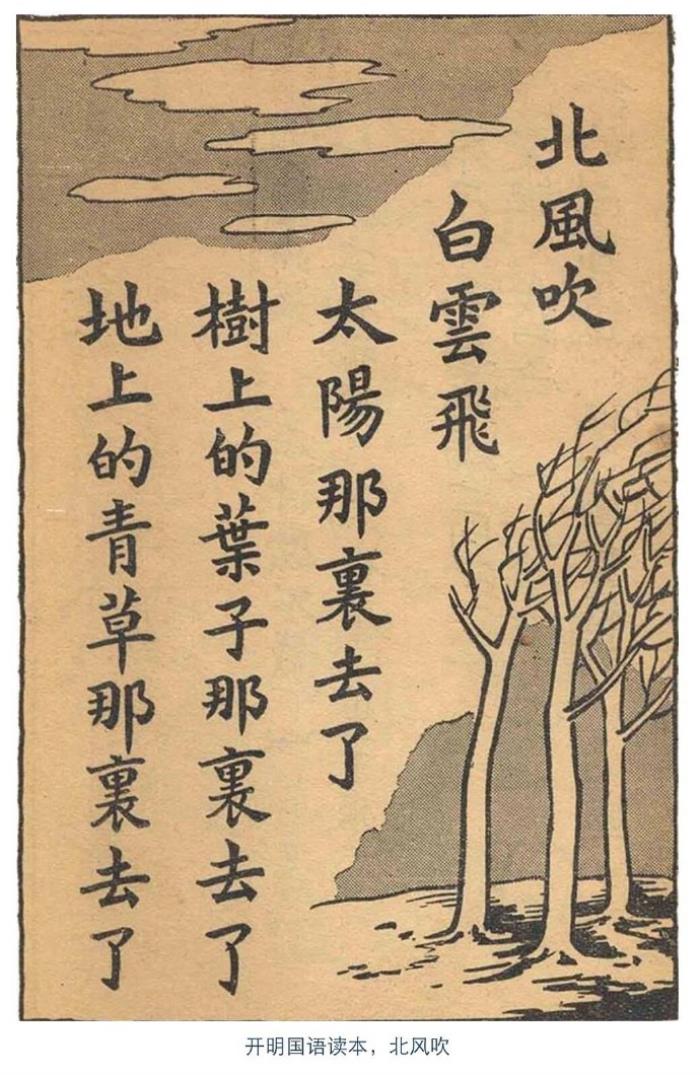 北風吹
白雲飛
太陽那裏去了
樹上的葉子那裏去了
地上的青草那裏去了
开明国语读本，北风吹